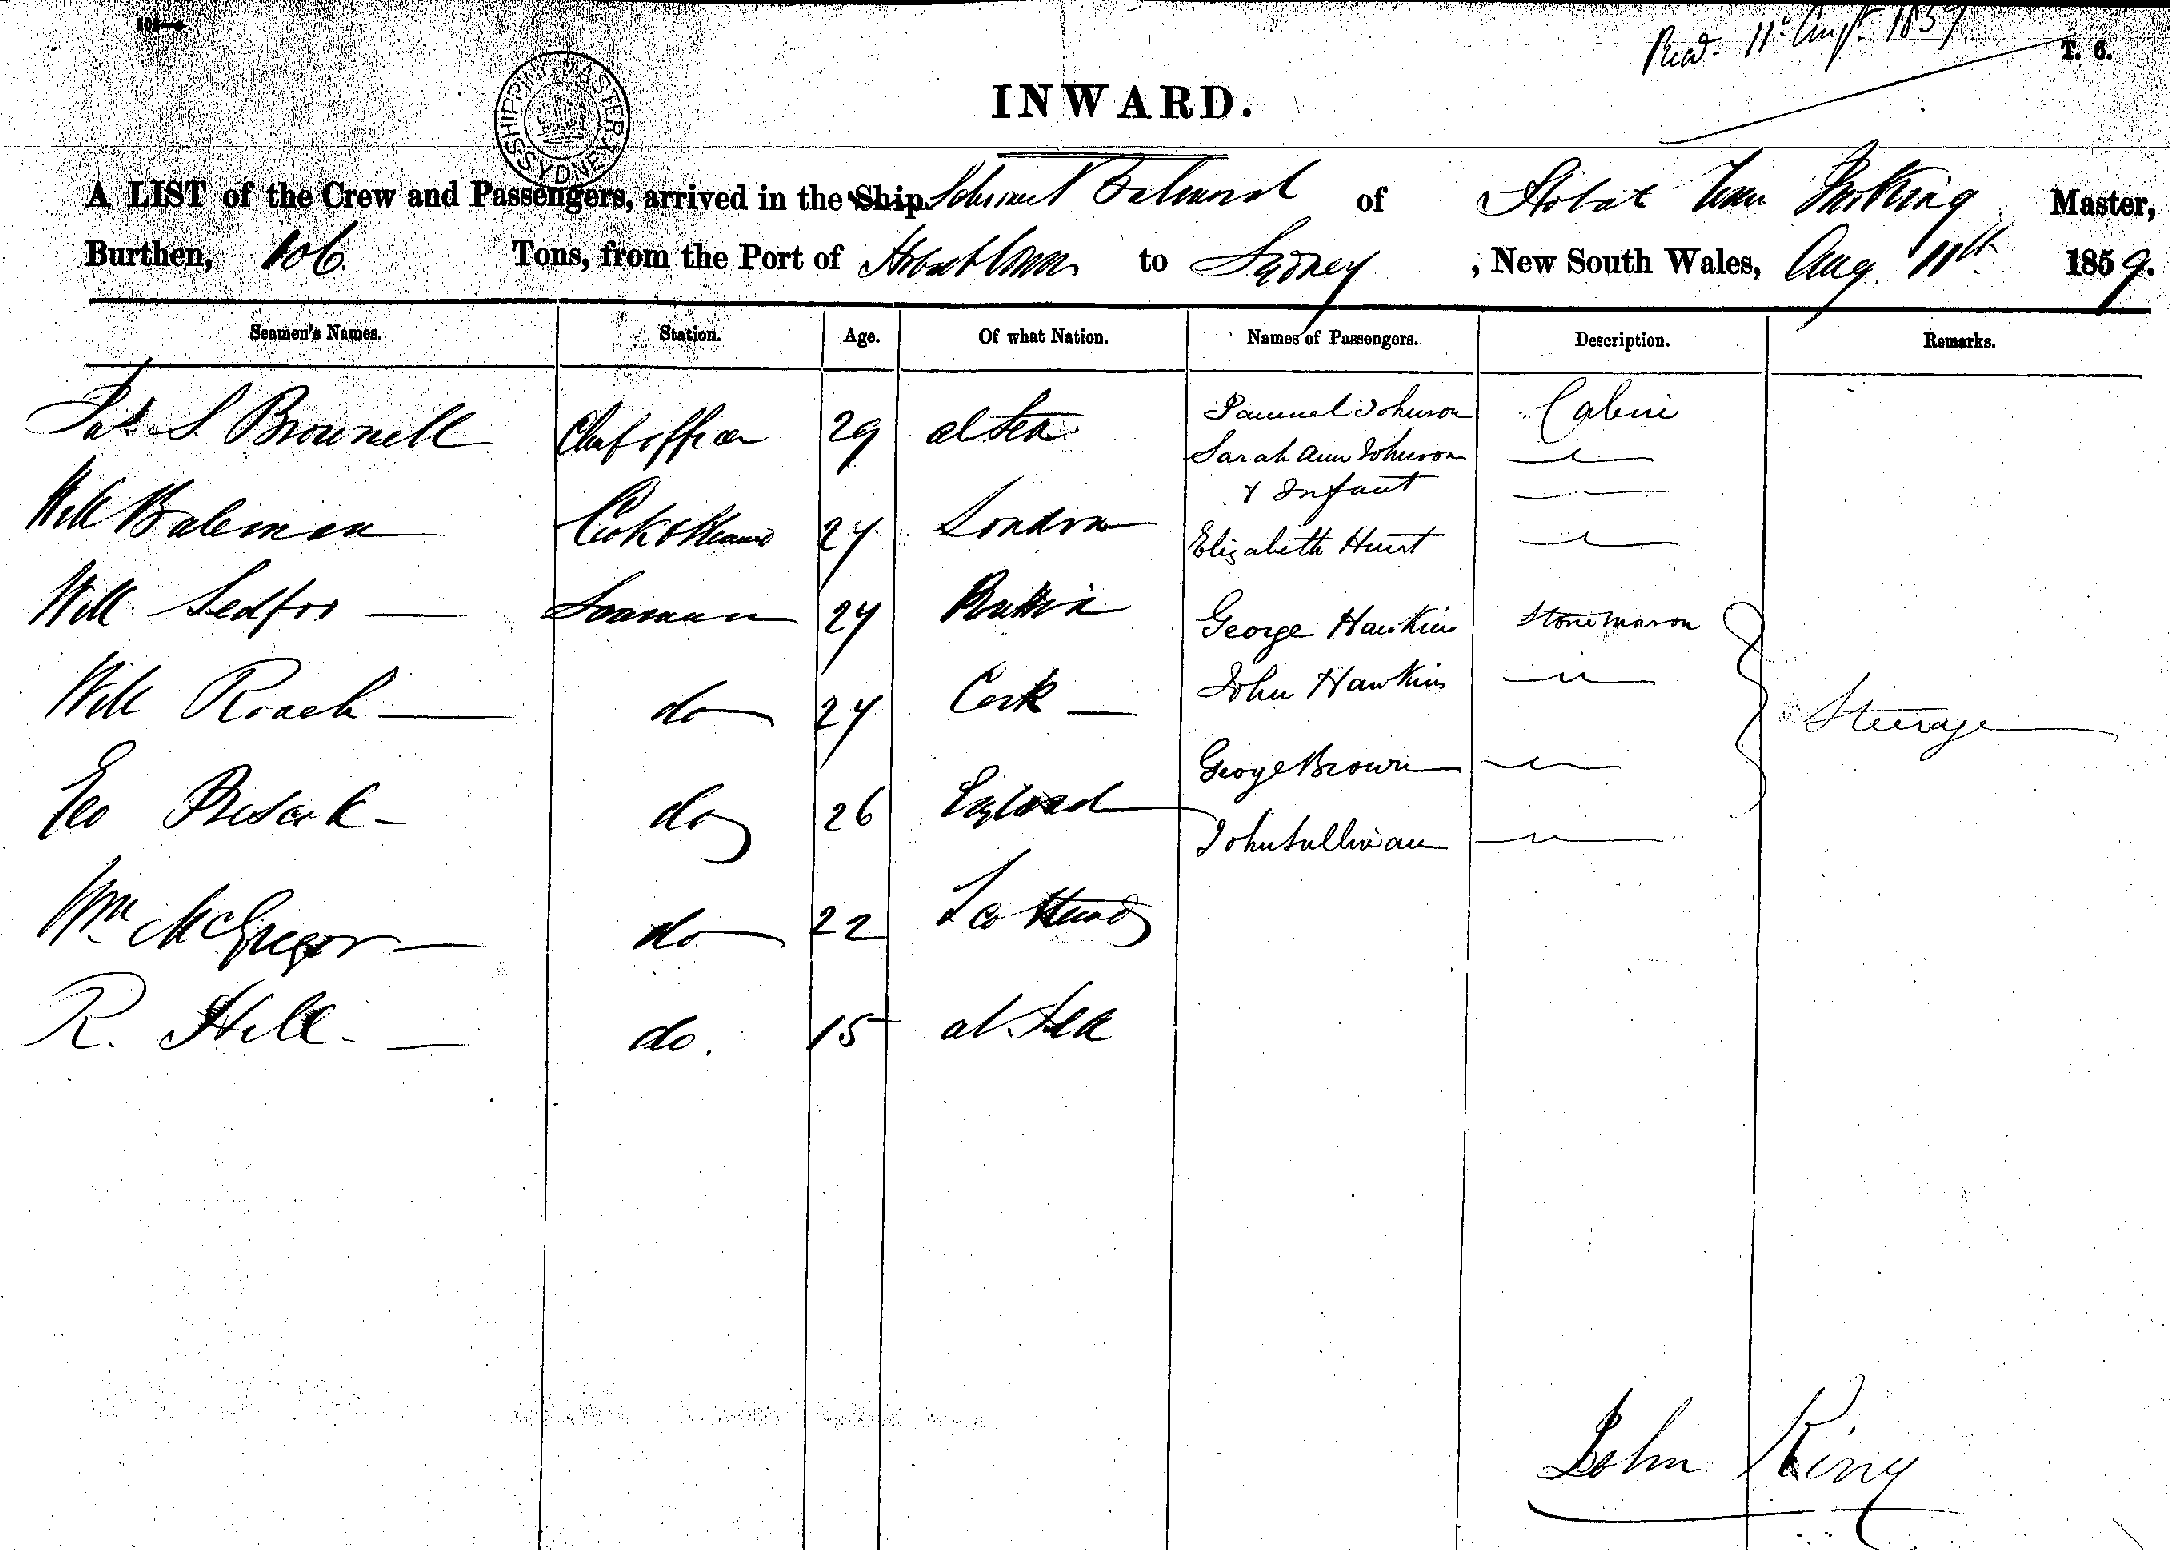 T. 6.
Recd. 11th Augt. 1859
SHIPPING MASTER SYDNEY
INWARD.
A LIST of the Crew and Passengers, arrived in the Ship of Hobart Town King Master,
Burthen, 106 Tons, from the Port of Hobart Town to Sydney, New South Wales, Aug 11th 1859.
Seamen's Names. Station. Age. Of what Nation. Names of Passengers. Description. Remarks.
Jas S. Brownell Chief officer 29 at Sea Samuel Johnson Cabin
Sarah Ann Johnson —"—
& Infant —"—
Will Bateman Cook & Steward 27 London Elizabeth Hurst —"—
Will Sedfor Seaman 27 George Hawkins Stonemason
Will Roach do 27 Cork John Hawkins —"— Steerage
George Brown —"—
Geo do 26 England John Sullivan —"—
Wm McGregor do 22 Scotland
R. Hill do. 15 at Sea
John King